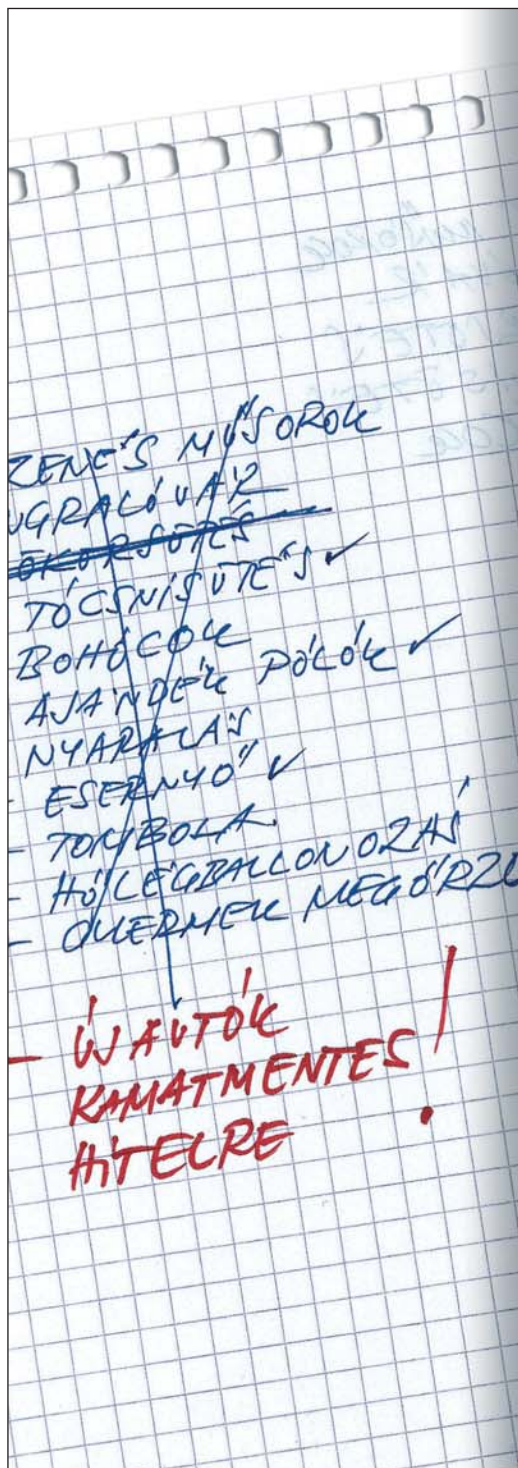 ZENÉS MŰSOROK
UGRÁLÓVÁR
ÖKÖRSÜTÉS
TÓCSNISÜTÉS ✓
BOHÓCOK
AJÁNDÉK PÓLÓK ✓
NYARALÁS
- ESERNYŐ ✓
- TOMBOLA
- HŐLÉGBALLONOZÁS
- GYERMEK MEGŐRZŐ
- ÚJ AUTÓK
KAMATMENTES!
HITELRE